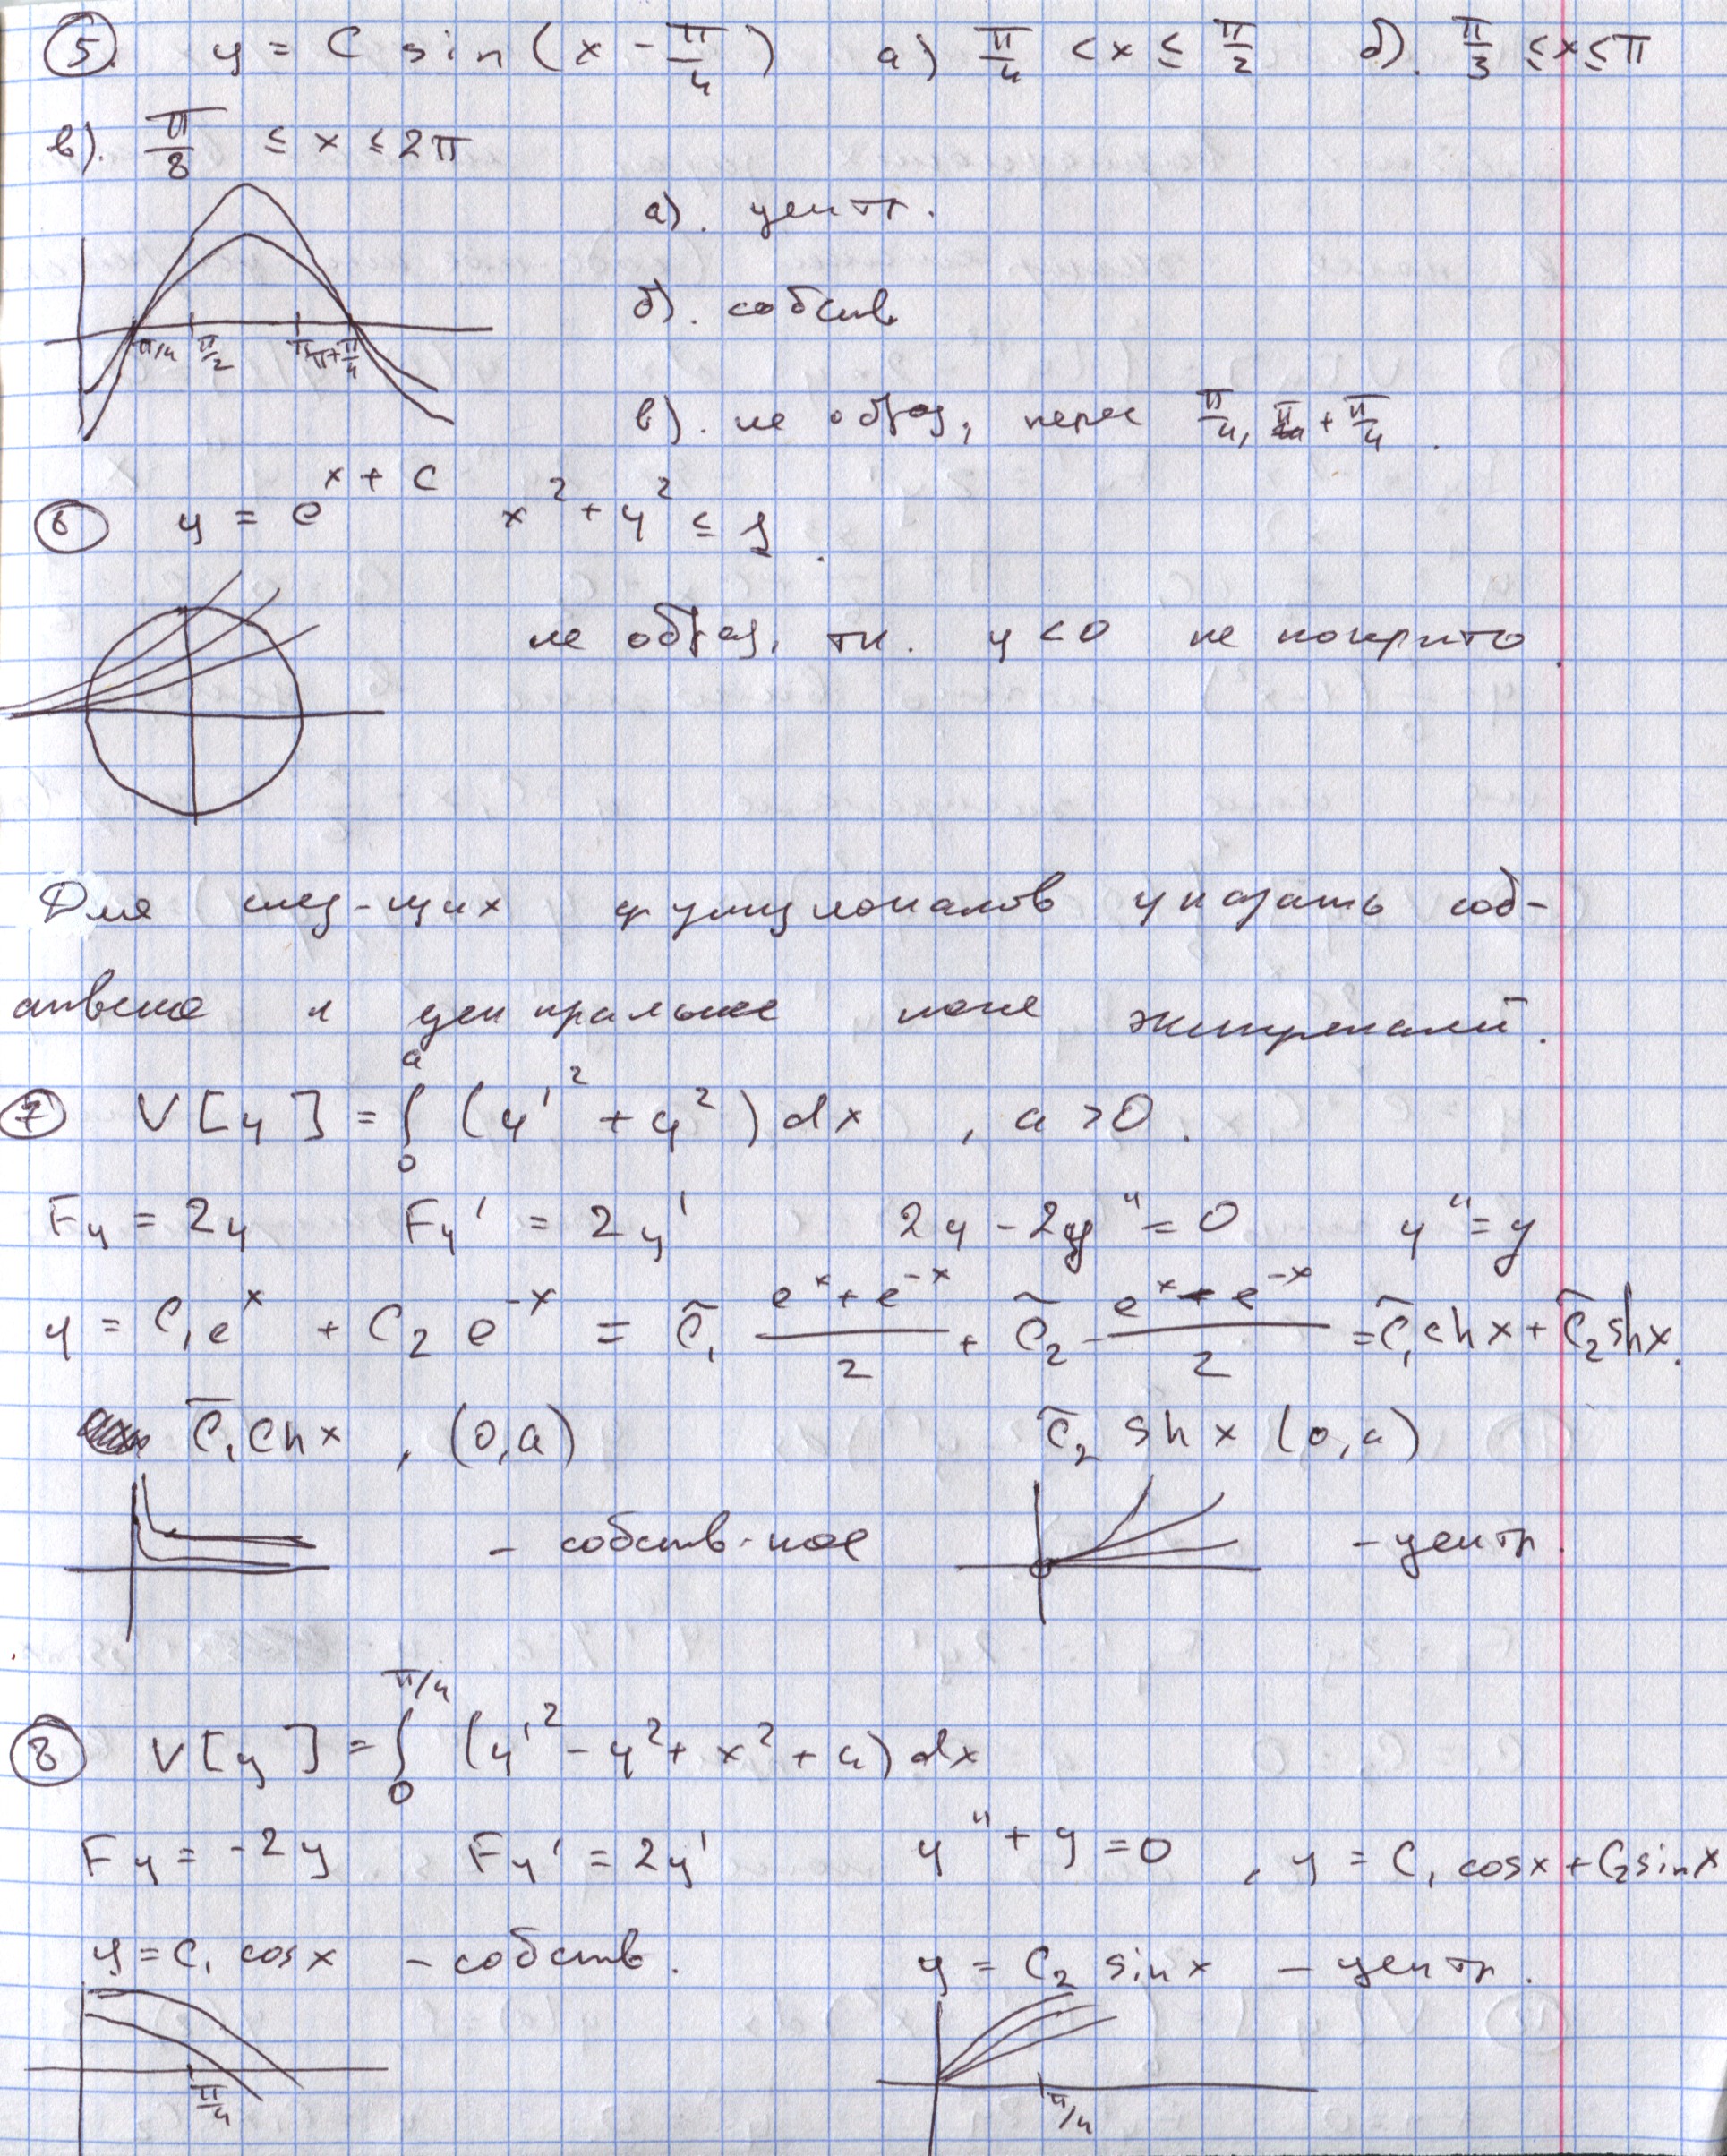 5. y = C sin(x - π/4) а) π/4 < x ≤ π/2 б). π/3 ≤ x ≤ π
в). π/8 ≤ x ≤ 2π
а). центр.
б). собств
π/4 π/2 π π+π/4
в). не образ, перес π/4, π + π/4.
6 y = e^{x + C} x² + y² ≤ 1.
не образ, тк. y < 0 не покрыто.
Для след-щих функционалов указать соб-
ственное и центральное поле экстремалей.
7 V[y] = ∫₀ᵃ (y'² + y²) dx, a > 0.
Fy = 2y Fy' = 2y' 2y - 2y'' = 0 y'' = y
y = C₁eˣ + C₂e⁻ˣ = C̃₁ (eˣ + e⁻ˣ)/2 + C̃₂ (eˣ - e⁻ˣ)/2 = C̃₁ ch x + C̃₂ sh x.
C̃₁ ch x, (0, a) C̃₂ sh x (0, a)
- собств-ное - центр.
8 V[y] = ∫₀^{π/4} (y'² - y² + x² + 4) dx
Fy = -2y Fy' = 2y' y'' + y = 0, y = C₁ cos x + C₂ sin x
y = C₁ cos x - собств. y = C₂ sin x - центр.
π/4 π/4